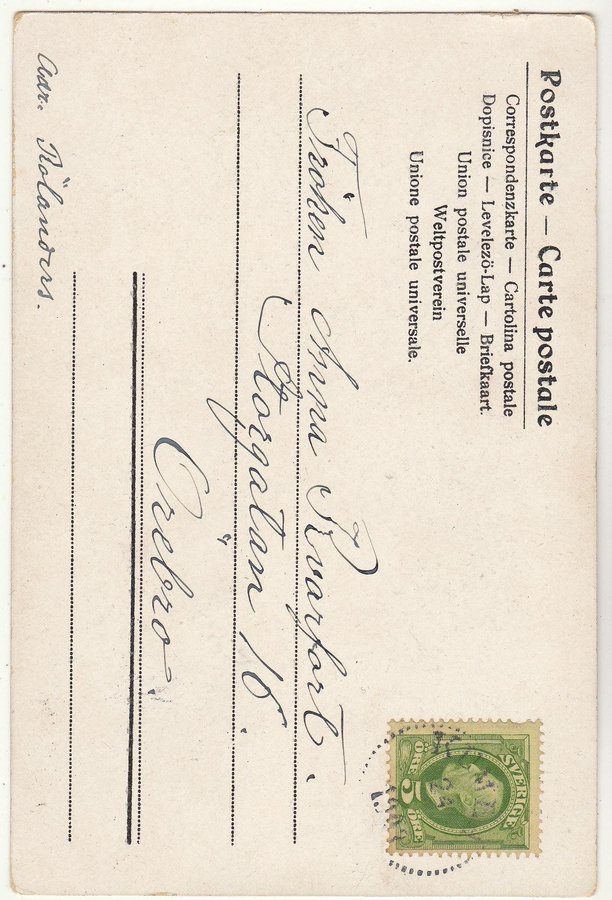 Postkarte — Carte postale
Correspondenzkarte — Cartolina postale
Dopisnice — Levelező-Lap — Briefkaart.
Union postale universelle
Weltpostverein
Unione postale universale.
SVERIGE
5
ÖRE ÖRE
Fröken Anna Kvarfort.
Storgatan 16.
Örebro.
Adr. Rölanders.